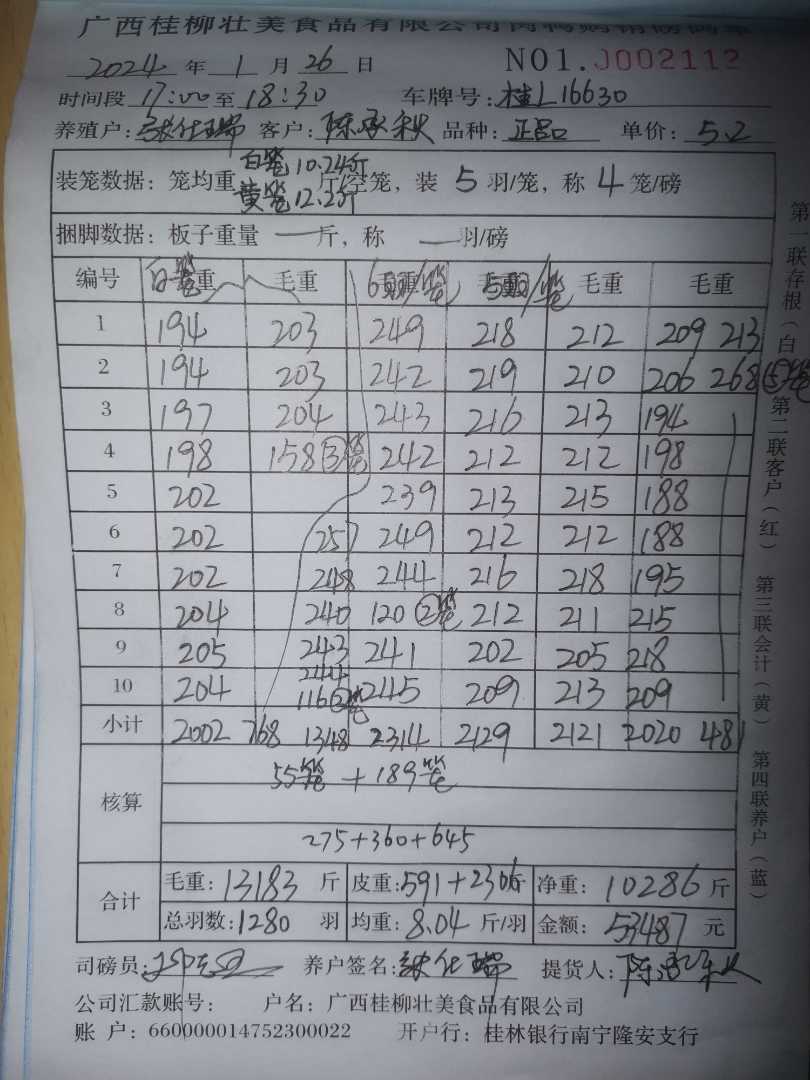 广西桂柳壮美食品有限公司肉鸭购销磅码单
2024 年 1 月 26 日 NO1.J002112
时间段 17:00 至 18:30 车牌号: 桂L16630
养殖户: 客户: 陈承秋 品种: 正品 单价: 5.2
白笼10.24斤
装笼数据: 笼均重 斤/空笼, 装 5 羽/笼, 称 4 笼/磅
黄笼12.2斤
捆脚数据: 板子重量 — 斤, 称 — 羽/磅
编号 白笼 毛重 毛重 6 /笼 5 /笼 毛重 毛重
1 194 203 249 218 212 209 213
2 194 203 242 219 210 206 268⑤笼
3 197 204 243 216 213 194
4 198 158③笼 242 212 212 198
5 202 239 213 215 188
6 202 257 249 212 212 188
7 202 248 244 216 218 195
8 204 240 120②笼 212 211 215
9 205 243 241 202 205 218
244
10 204 116②笼 245 209 213 209
小计 2002 768 1348 2314 2129 2121 2020 481
核算 55笼 + 189笼
275+360+645
合计 毛重: 13183 斤 皮重: 591+2306 斤 净重: 10286 斤
总羽数: 1280 羽 均重: 8.04 斤/羽 金额: 53487 元
司磅员: 养户签名: 提货人: 陈承秋
公司汇款账号: 户名: 广西桂柳壮美食品有限公司
账 户: 660000014752300022 开户行: 桂林银行南宁隆安支行
第一联存根(白)第二联客户(红)第三联会计(黄)第四联养户(蓝)